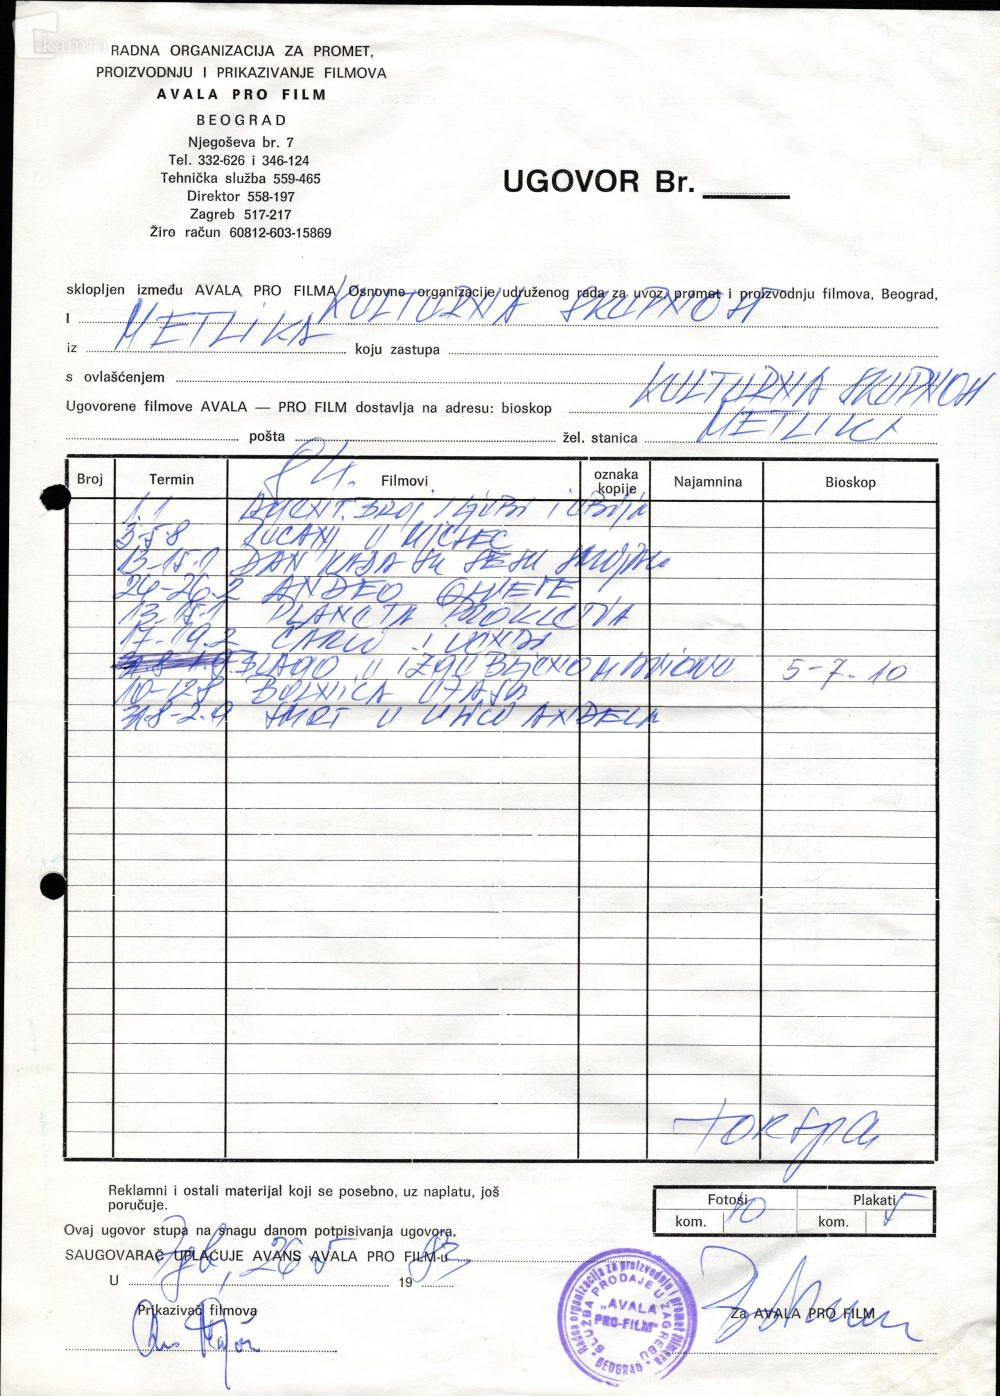 kamra
RADNA ORGANIZACIJA ZA PROMET,
PROIZVODNJU I PRIKAZIVANJE FILMOVA
AVALA PRO FILM
BEOGRAD
Njegoševa br. 7
Tel. 332-626 i 346-124
Tehnička služba 559-465
Direktor 558-197
Zagreb 517-217
Žiro račun 60812-603-15869
UGOVOR Br.
sklopljen između AVALA PRO FILMA Osnovne organizacije udruženog rada za uvoz, promet i proizvodnju filmova, Beograd,
I KULTURNA SKUPNOST
iz METLIKA koju zastupa
s ovlašćenjem
KULTURNA SKUPNOST
Ugovorene filmove AVALA — PRO FILM dostavlja na adresu: bioskop
pošta žel. stanica METLIKA
84.
Broj Termin Filmovi oznaka kopije Najamnina Bioskop
1.1 BROJ I LJUBI I UBIJA
3-5-8 U
13-15.1 DAN KADA SU
24-26.2 ANĐEO OSVETE
13-15.1 PLANETA PROKLETIH
17-19.2 I
BLAGO U IZGUBLJENOM AVIONU 5-7.10
10-12.8 BOLNICA UŽASA
31.8-2.9 SMRT U ULICI ANĐELA
Reklamni i ostali materijal koji se posebno, uz naplatu, još
poručuje.
Fotosi Plakati
kom. 10 kom. 5
Ovaj ugovor stupa na snagu danom potpisivanja ugovora.
SAUGOVARAČ UPLAĆUJE AVANS AVALA PRO FILM-u
U Zgb, 26 5 19 83
Prikazivač filmova
Za AVALA PRO FILM
Radna organizacija za proizvodnju i promet filmova
SLUŽBA PRODAJE U ZAGREBU
„AVALA
PRO-FILM"
BEOGRAD